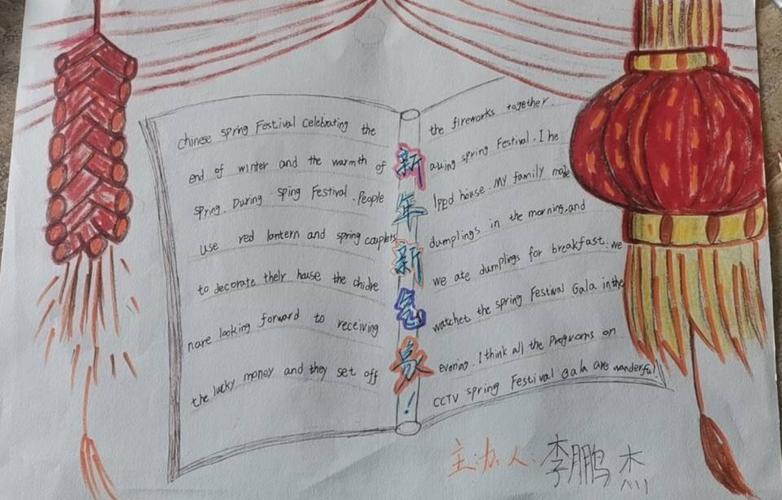 chinese spring Festival celebrating the
end of winter and the warmth of
spring. During Sping Festival. People
use red lantern and spring couplets
to decorate their house the childre
nare looking forward to receiving
the lucky money and they set off
新年新气象!
the fireworks together
spring Festival. I he
house. My family made
dumplings in the morning,and
we ate dumplings for breakfast. we
watchet the spring Festival Gala in the
evening. I think all the Programs on
CCTV spring Festival Gala are wonderful!
主办人:李鹏杰